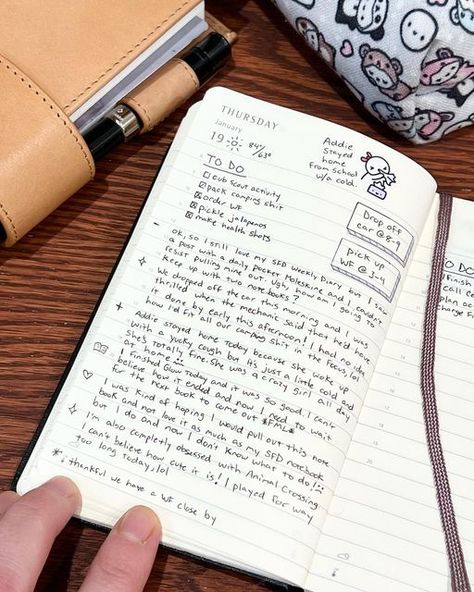 THURSDAY
January
19 84°/63°
Addie
Stayed
home
From school
w/a cold.
TO DO
cub scout activity
pack camping shit
order WF
pickle jalapenos
make health shots
Drop off
car @ 8-9
pick up
WF @ 3-4
OK, so I still love my SFD weekly Diary but I saw
a post with a daily pocket Moleskine and I couldn't
resist pulling mine out. Ugh, how am I going to
keep up with two notebooks?
We dropped off the car this morning and I was
thrilled when the mechanic said that he'd have
it done by early this afternoon! I had no idea
how I'd fit all our camping shit in the Focus, lol
Addie stayed home today because she woke up
with a yucky cough but it's just a little cold and
She's totally fine. She was a crazy girl all day
at home
I finished Glow today and it was so good. I can't
believe how it ended and now I need to wait
for the next book to come out *FML*
I was kind of hoping I would pull out this note
book and not love it as much as my SFD notebook
but I do and now I don't know what to do!
I'm also completly obsessed with Animal Crossing
I can't believe how cute it is! I played for way
too long today, lol
*i thankful we have a WF close by
TO D
Finish
call
Charge